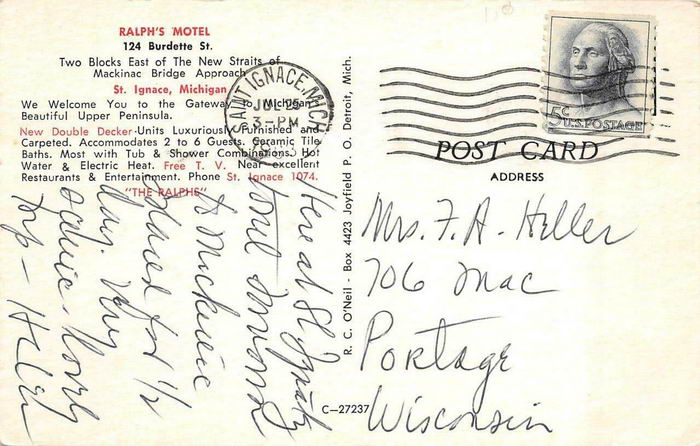 RALPH'S MOTEL
124 Burdette St.
Two Blocks East of The New Straits of
Mackinac Bridge Approach
St. Ignace, Michigan
We Welcome You to the Gateway to Michigan's
Beautiful Upper Peninsula.
New Double Decker-Units Luxuriously Furnished and
Carpeted. Accommodates 2 to 6 Guests. Ceramic Tile
Baths. Most with Tub & Shower Combinations. Hot
Water & Electric Heat. Free T. V. Near excellent
Restaurants & Entertainment. Phone St. Ignace 1074.
"THE RALPHS"
Here at St. Ignatz
to
for 1/2
day. Very
scenic. Lovely
trip - Helen
SAINT IGNACE, MICH.
JUL
3-PM
R. C. O'Neil - Box 4423 Joyfield P. O. Detroit, Mich.
C-27237
5c
U.S. POSTAGE
POST CARD
ADDRESS
Mrs. F. A. Heller
706 Mac
Portage
Wisconsin